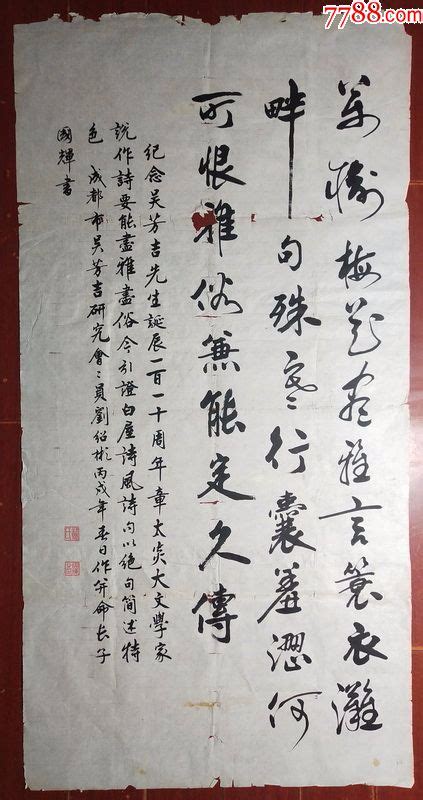 7788.com
萬樹梅花盡雅言蓑衣灘
畔句殊行囊羞澀何
可恨雅俗兼能定久傳
紀念吳芳吉先生誕辰一百一十周年章太炎大文學家
說作詩要能盡雅盡俗今引證白屋詩風詩句以絕句簡述特
色 成都市吳芳吉研究會々員劉紹彬丙戌年春日作并命長子
國輝書